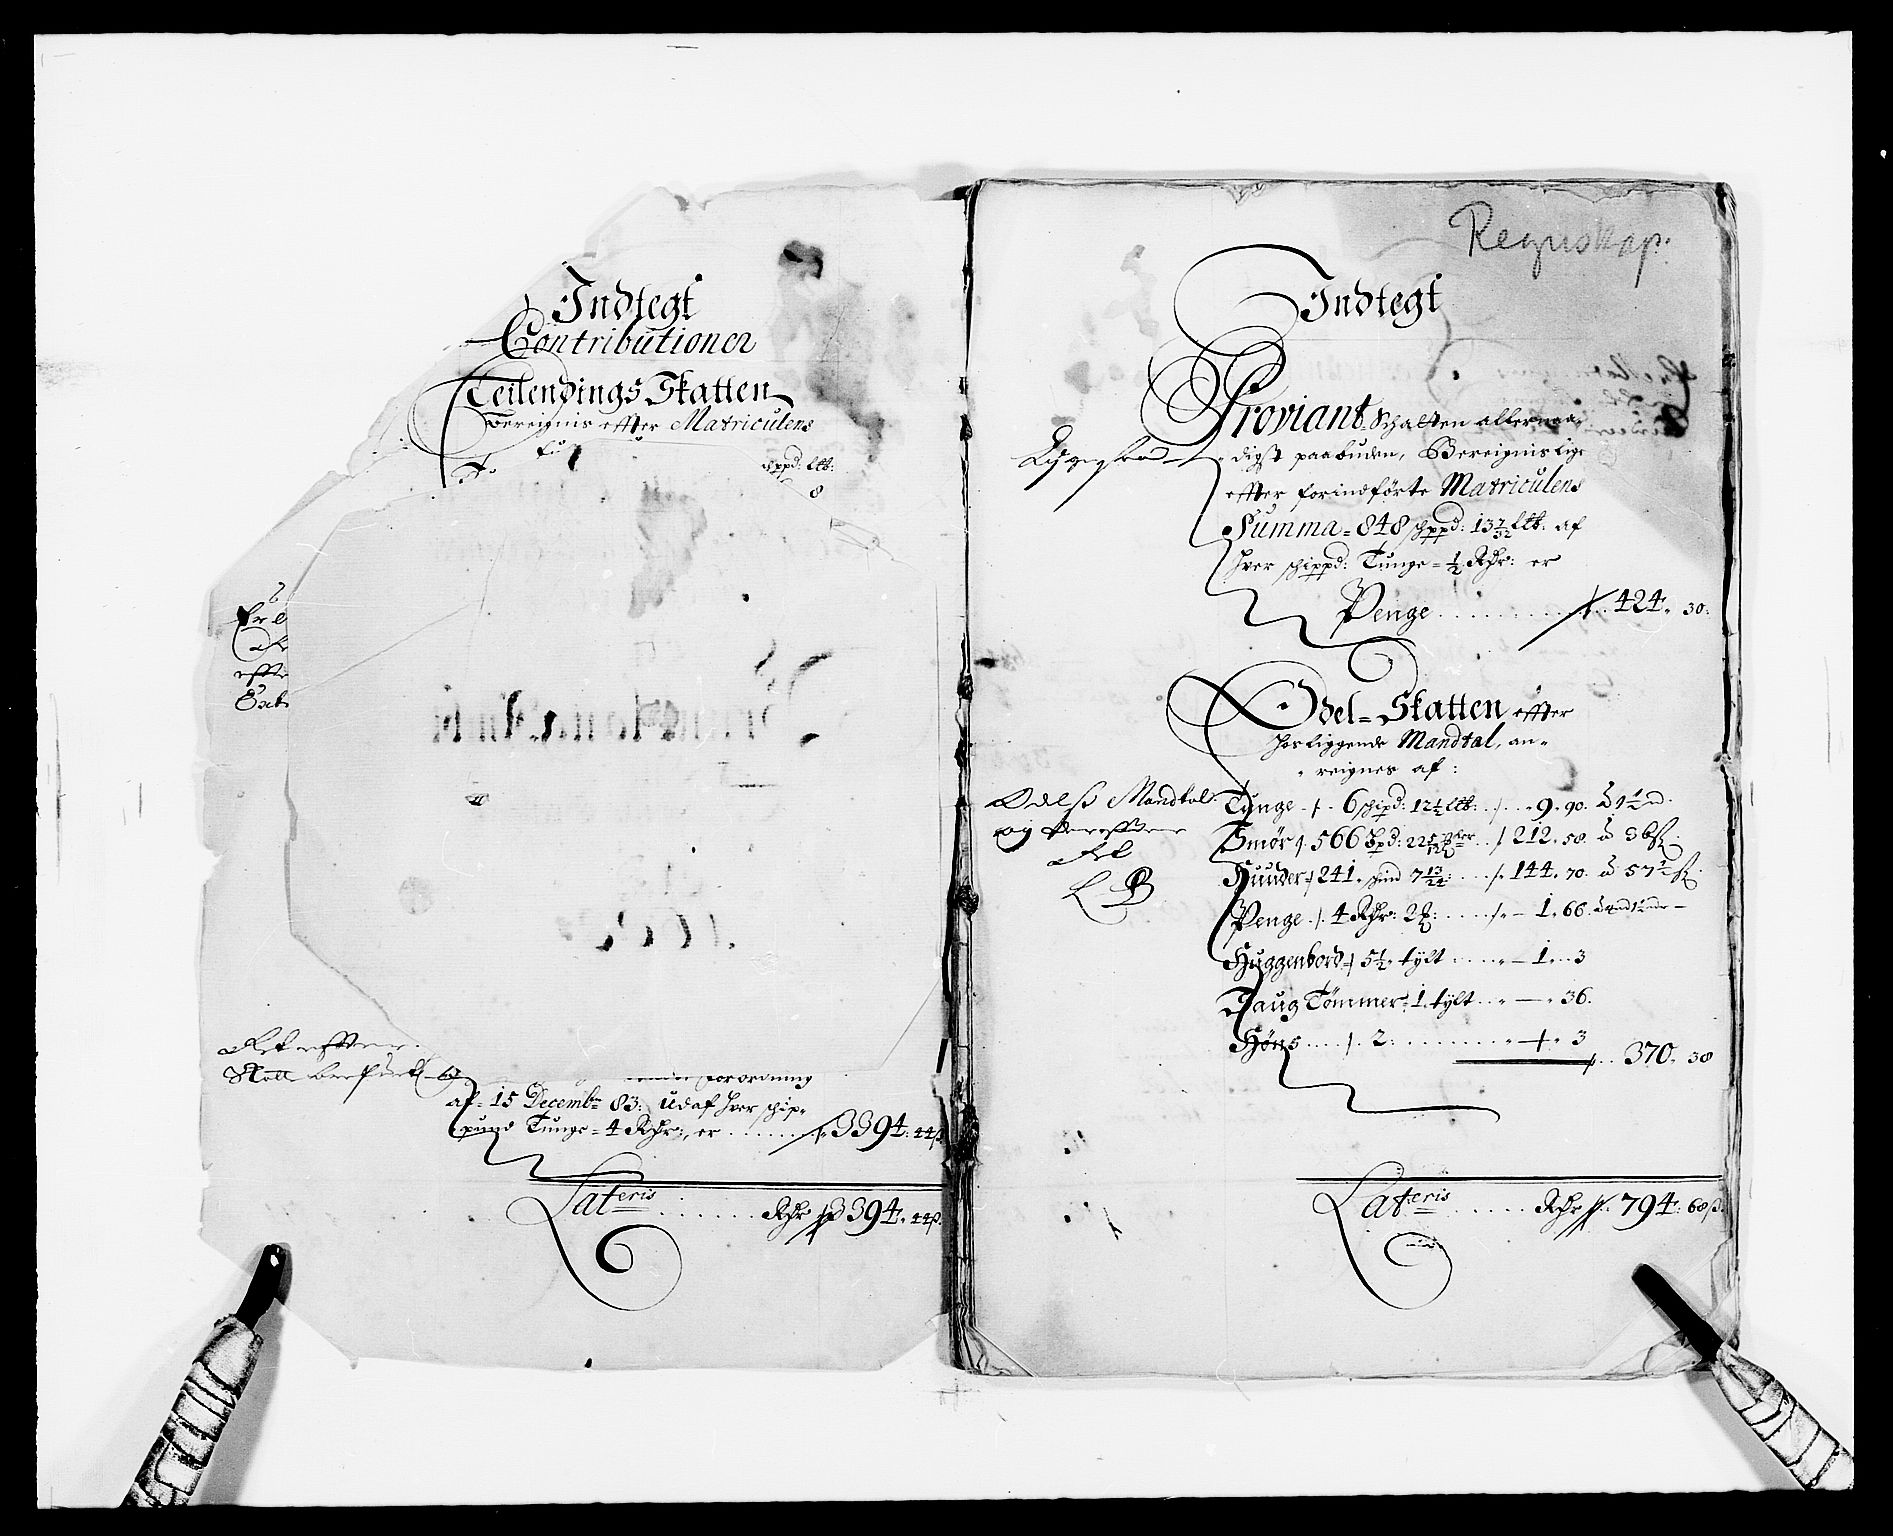 Indtegt
Contributioner
Leilendings Skatten
Bereignis effter Matriculens
schppd: ltb:
8
effte
Ret effter
af 15 Decembr 83: Udaf hver schip-
pund Tunge = 4 Rdr:, er ...... 3394. 44ß
Lateris ...... Rdr 3394. 44ß.
Regnskap:
Indtegt
Proviant Schatten allernaa-
digst paabuden, Bereignis lige
effter forindførte Matriculens
Summa = 848 schppd: 13 7/32 ltb: af
hver schippd: Tunge = 1/2 Rdr: er
Penge ...... 424. 30.
Odel = Skatten effter
hosliggende Mandtal, an-
reignes af:
Odelß Mandtal
og derefter
Ret
Tunge 6 schipd: 12 1/2 ltb: ... 9. 90.
Smør 566 ... 212. 58. à 36ß.
Huuder 241. skind 7 13/24: ... 144. 70. à 57 1/2 ß.
Penge 4 Rdr: 2ß: ... 1. 66.
Huggenbord 5 1/2 tylt ... 1. 3
Saug Tømmer 1. tylt ... 36.
Høns ... 2. ... 3
370. 38
Lateris ...... Rdr 794. 68ß.